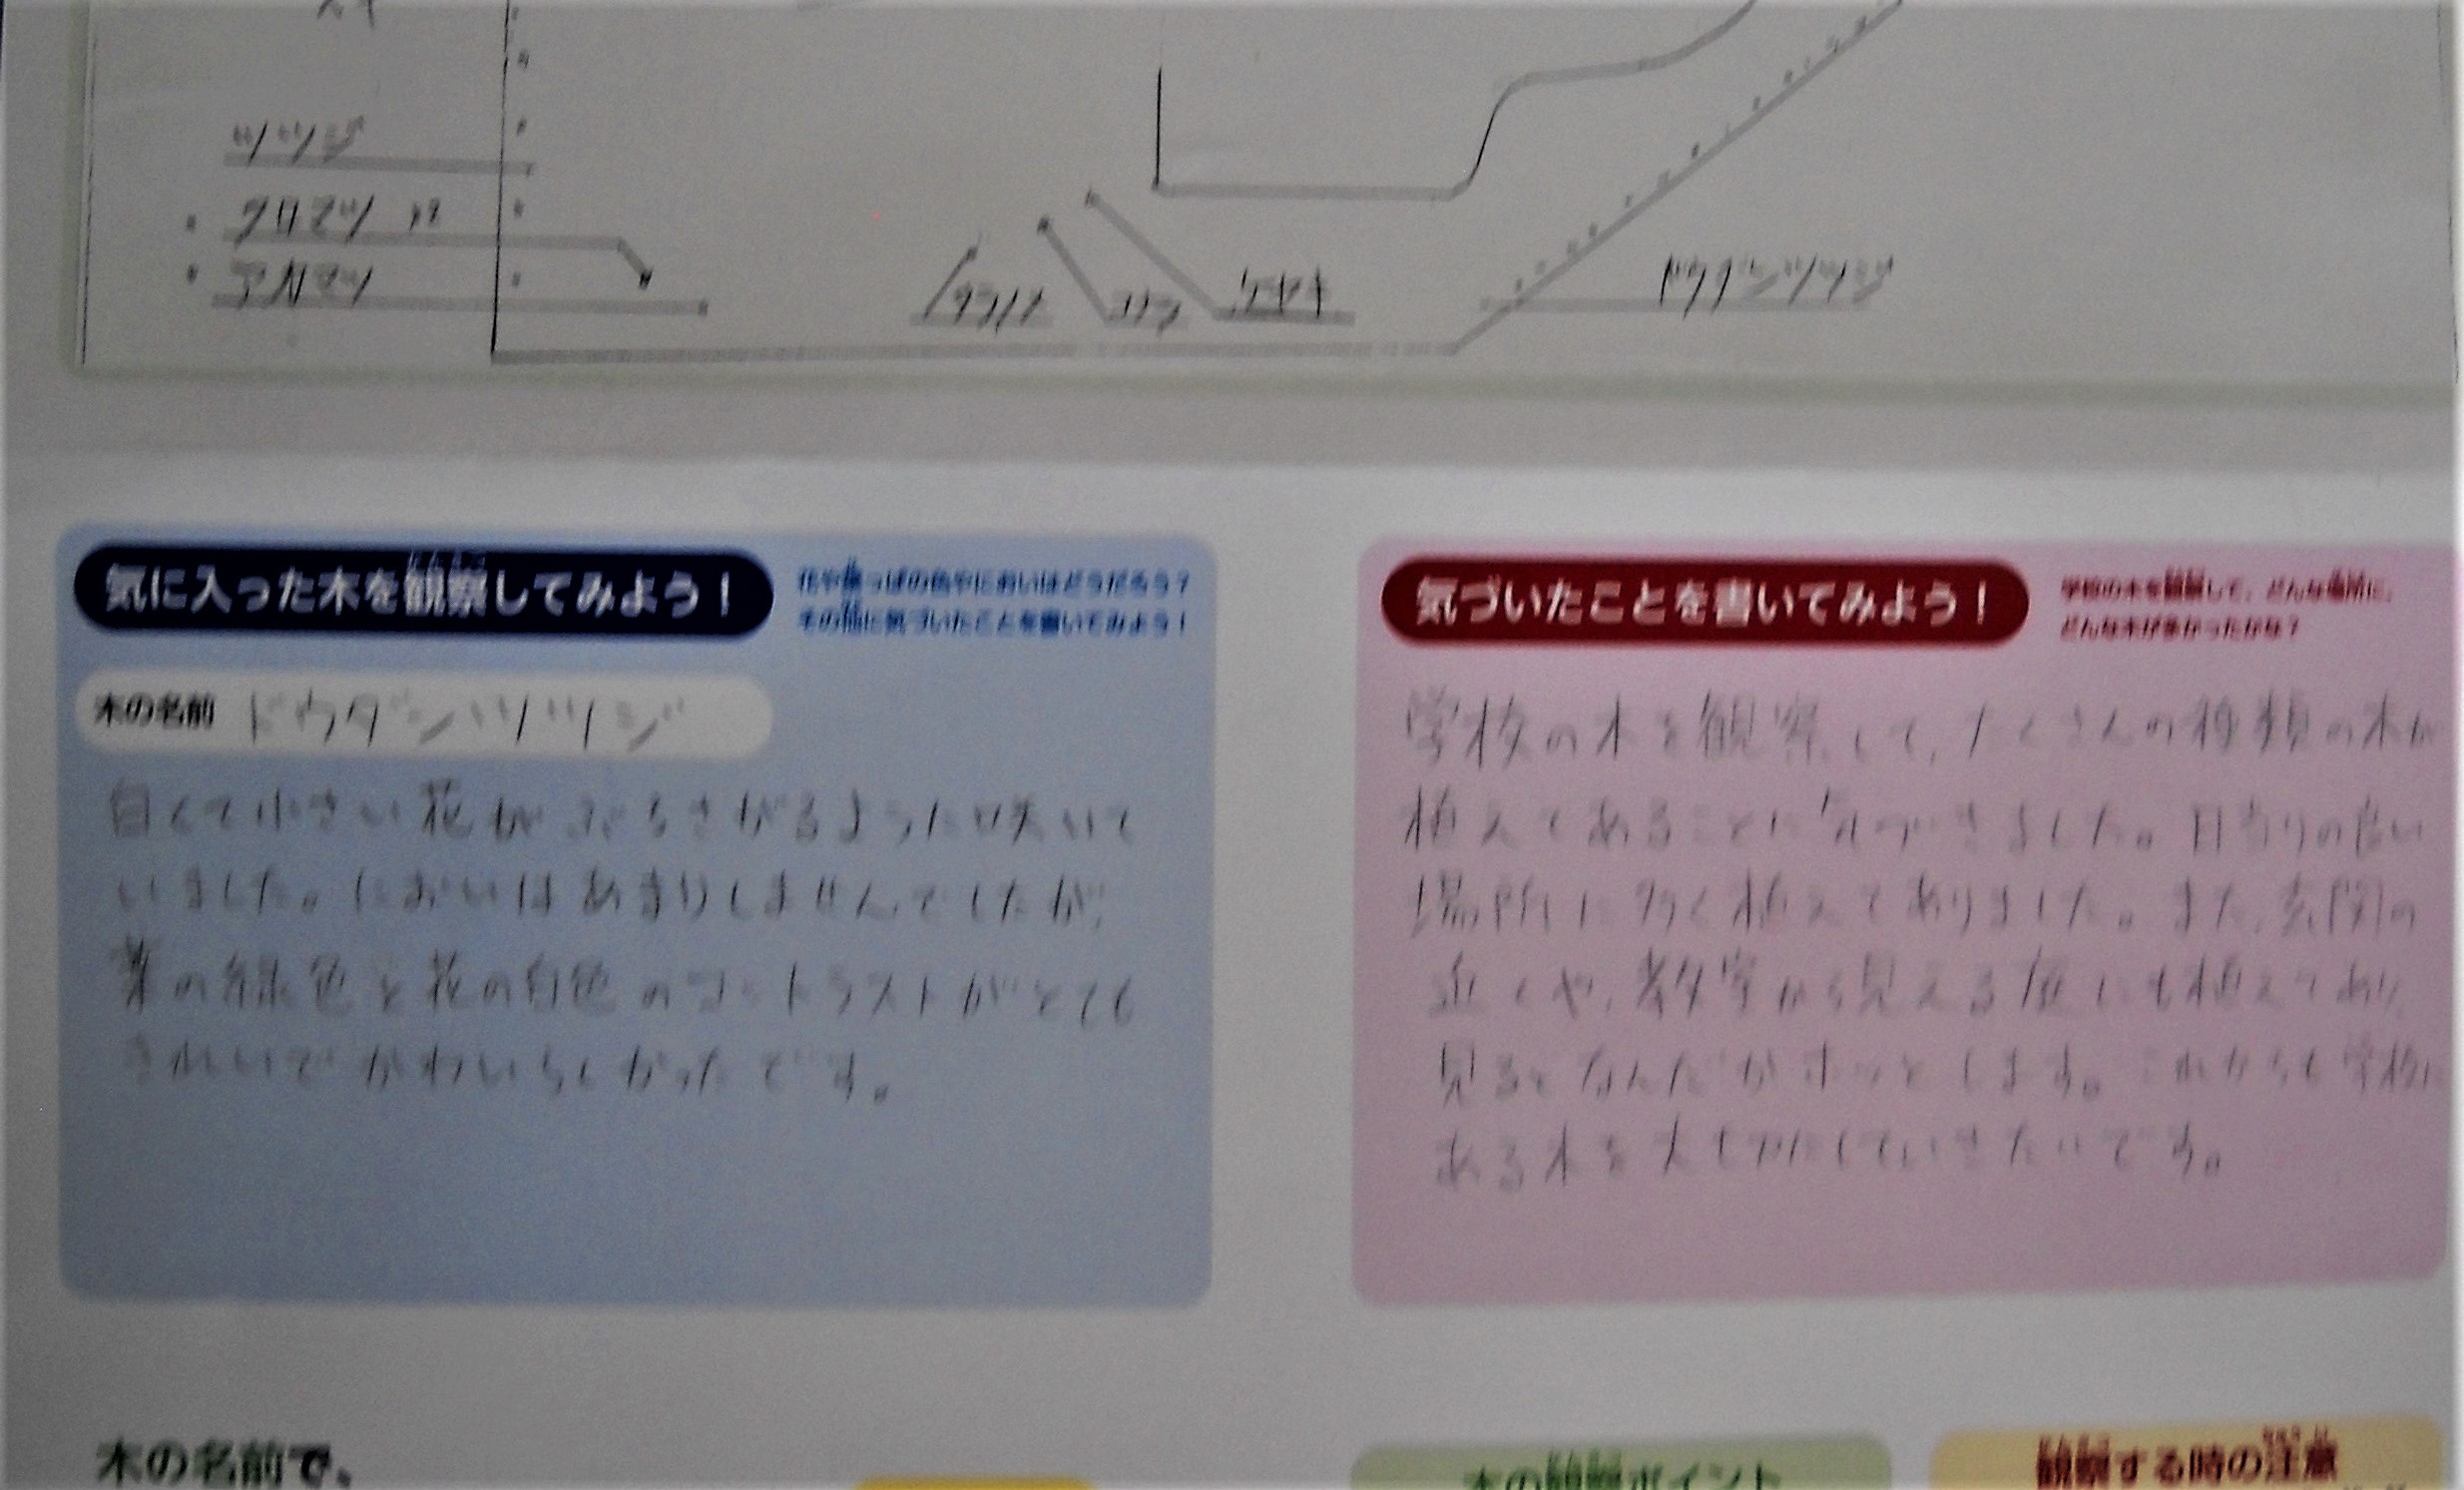 スギ
ツツジ
クロマツ
アカマツ
コナラ
ケヤキ
ドウダンツツジ
気に入った木を観察してみよう！
花や葉っぱの色やにおいはどうだろう？
その他に気づいたことを書いてみよう！
木の名前 ドウダンツツジ
白くて小さい花がぶらさがるように咲いて
いました。においはあまりしませんでしたが、
葉の緑色と花の白色のコントラストがとても
きれいでかわいらしかったです。
気づいたことを書いてみよう！
学校の木を観察して、どんな場所に、
どんな木が多かったかな？
学校の木を観察して、たくさんの種類の木が
植えてあることに気づきました。日当りの良い
場所に多く植えてありました。また、玄関の
近くや、教室から見える庭にも植えてあり、
見るとなんだかホッとします。これからも学校に
ある木を大切にしていきたいです。
木の名前で、
木の観察ポイント
観察する時の注意